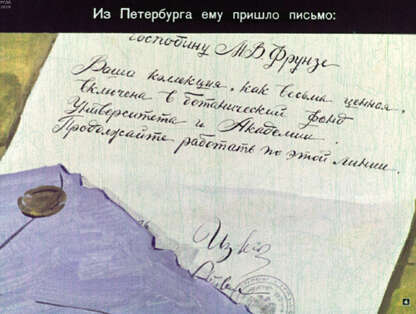 Из Петербурга ему пришло письмо:
Господину М.В. Фрунзе
Ваша коллекция, как весьма ценная,
включена в ботанический фонд
Университета и Академии.
Продолжайте работать по этой линии.
4